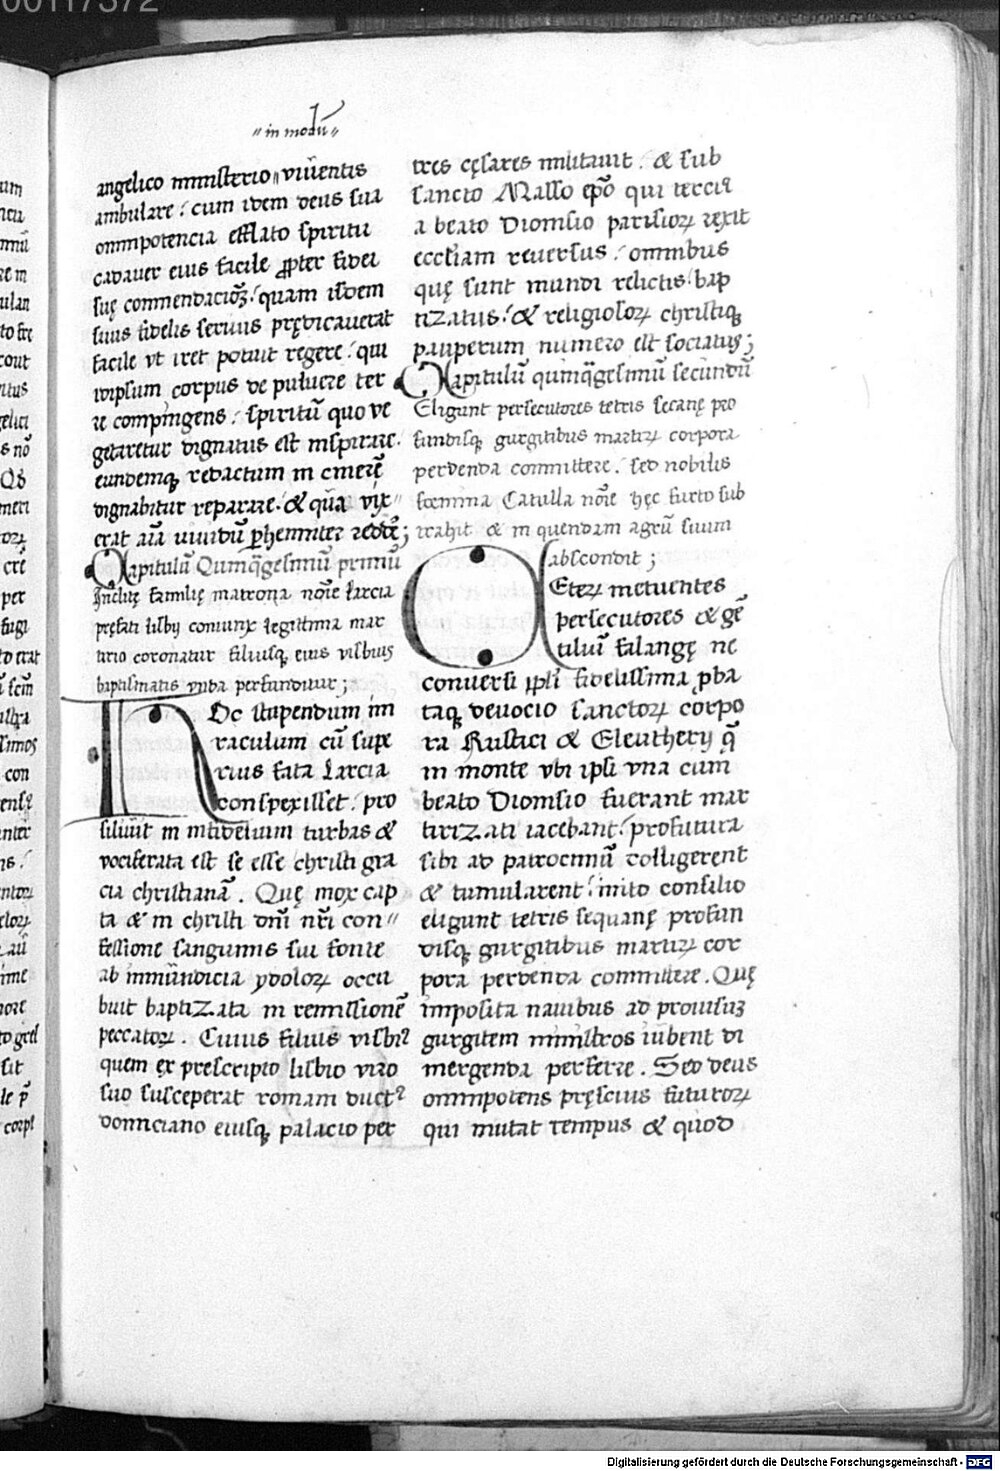 00117372
"in modū"
angelico ministerio "viuentis
ambulare: cum idem deus sua
omnipotencia efflato spiritu
cadauer eius facile ꝓpter fidei
suę commendacioꝫ: quam isdem
suus fidelis seruus prędicauerat
facile vt iret potuit regere: qui
idipsum corpus de puluere ter
re compingens: spiritū quo ve
getaretur dignatus est inspirare.
eundemqꝫ redactum in cinerē
dignabitur reparare. & qua vix"
erat aīa uiuidū ꝑhenniter reddē;
Capitulū Quinq̈gesimū primū
Inclitę familię matrona noīe larcia
pręfati lisbij coniunx legittima mar
tirio coronatur filiusqꝫ eius visbius
baptismatis vnda perfunditur;
Hoc stupendum mi
raculum cū supe
rius fata larcia
conspexisset. pro
siliuit in infidelium turbas &
vociferata est se esse christi gra
cia christianā. Quę mox cap
ta & in christi dnī nrī con"
fessione sanguinis sui fonte
ab inmūndicia ydoloꝝ occu
buit baptizata in remissionē
peccatoꝝ. Cuius filius visbiꝰ
quem ex prescripto lisbio viro
suo susceperat romam ductꝰ
domiciano eiusqꝫ palacio per
tres cęsares militauit: & sub
sancto Masso epō qui terciꝰ
a beato Dionisio parisioꝝ rexit
eccłiam reuersus: omnibus
quę sunt mundi relictis: bap
tizatus: & religiosoꝝ christiqꝫ
pauperum numero est sociatus;
Capitulū quinq̈gesimū secundū
Eligunt persecutores tetris secanę pro
fundisqꝫ gurgitibus martirꝝ corpora
perdenda committere. sed nobilis
foemina Catulla noīe hęc furto sub
trahit & in quendam agrū suum
abscondit;
Ceteꝝ metuentes
persecutores & gē
tiliū falangę ne
conuersi ip̄li fidelissima ꝓba
taqꝫ deuocio sanctoꝝ corpo
ra Rustici & Eleutherij q̄
in monte vbi ipsi vna cum
beato Dionisio fuerant mar
tirizati iacebant: profutura
sibi ad patrocinīū colligerent
& tumularent: inito consilio
eligunt tetris sequanę profun
disqꝫ gurgitibus martirꝝ cor
pora perdenda committere. Quę
imposita nauibus ad prouisuꝫ
gurgitem ministros iubent di
mergenda perferre. Sed deus
omnipotens pręscius futuroꝝ
qui mutat tempus & quod
Digitalisierung gefördert durch die Deutsche Forschungsgemeinschaft - DFG